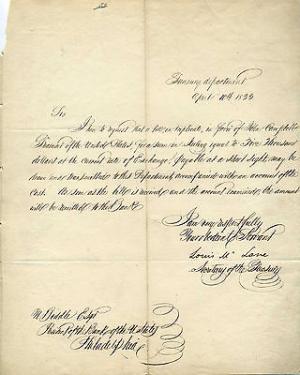 Treasury department
April 10th 1833
Sir
I have to request that a bill in triplicate, in favor of John Campbell
Treasurer of the United States for a sum in Sterling equal to Five Thousand
dollars at the current rate of Exchange, payable at short sight, may be
drawn and transmitted to this Department, accompanied with an account of the
Cost. As soon as the bill is received and the account examined, the amount
will be remitted to the Bank.
I am very respectfully
Your obedient Servant
Louis McLane
Secretary of the Treasury
N. Biddle Esqr
President of the Bank of the U States
Philadelphia